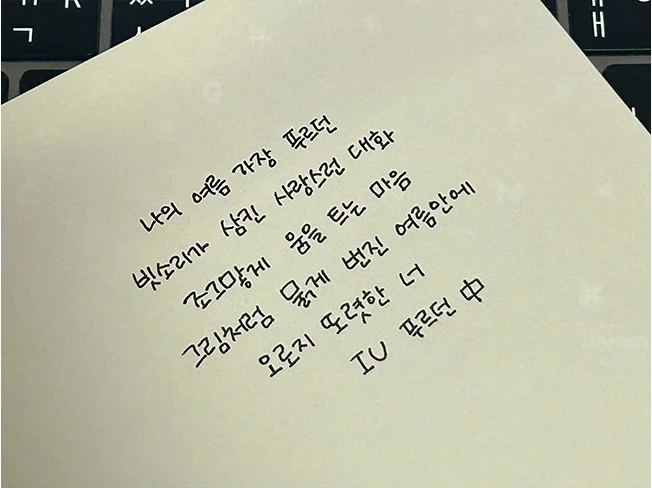 나의 여름 가장 푸르던
빗소리가 삼킨 사랑스런 대화
조그맣게 움을 트는 마음
그림처럼 묽게 번진 여름안에
오로지 또렷한 너
IU 푸르던 中